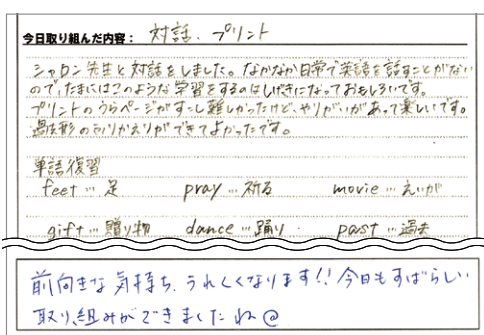 今日取り組んだ内容： 対話、プリント
シャロン先生と対話をしました。なかなか日常で英語を話すことがない
ので、たまにはこのような学習をするのはしげきになっておもしろいです。
プリントのうらページがすこし難しかったけど、やりがいがあって楽しいです。
過去形のふりかえりができてよかったです。
単語復習
feet … 足 pray … 祈る movie … えいが
gift … 贈り物 dance … 踊り past … 過去
前向きな気持ち、うれしくなります!! 今日もすばらしい
取り組みができましたね